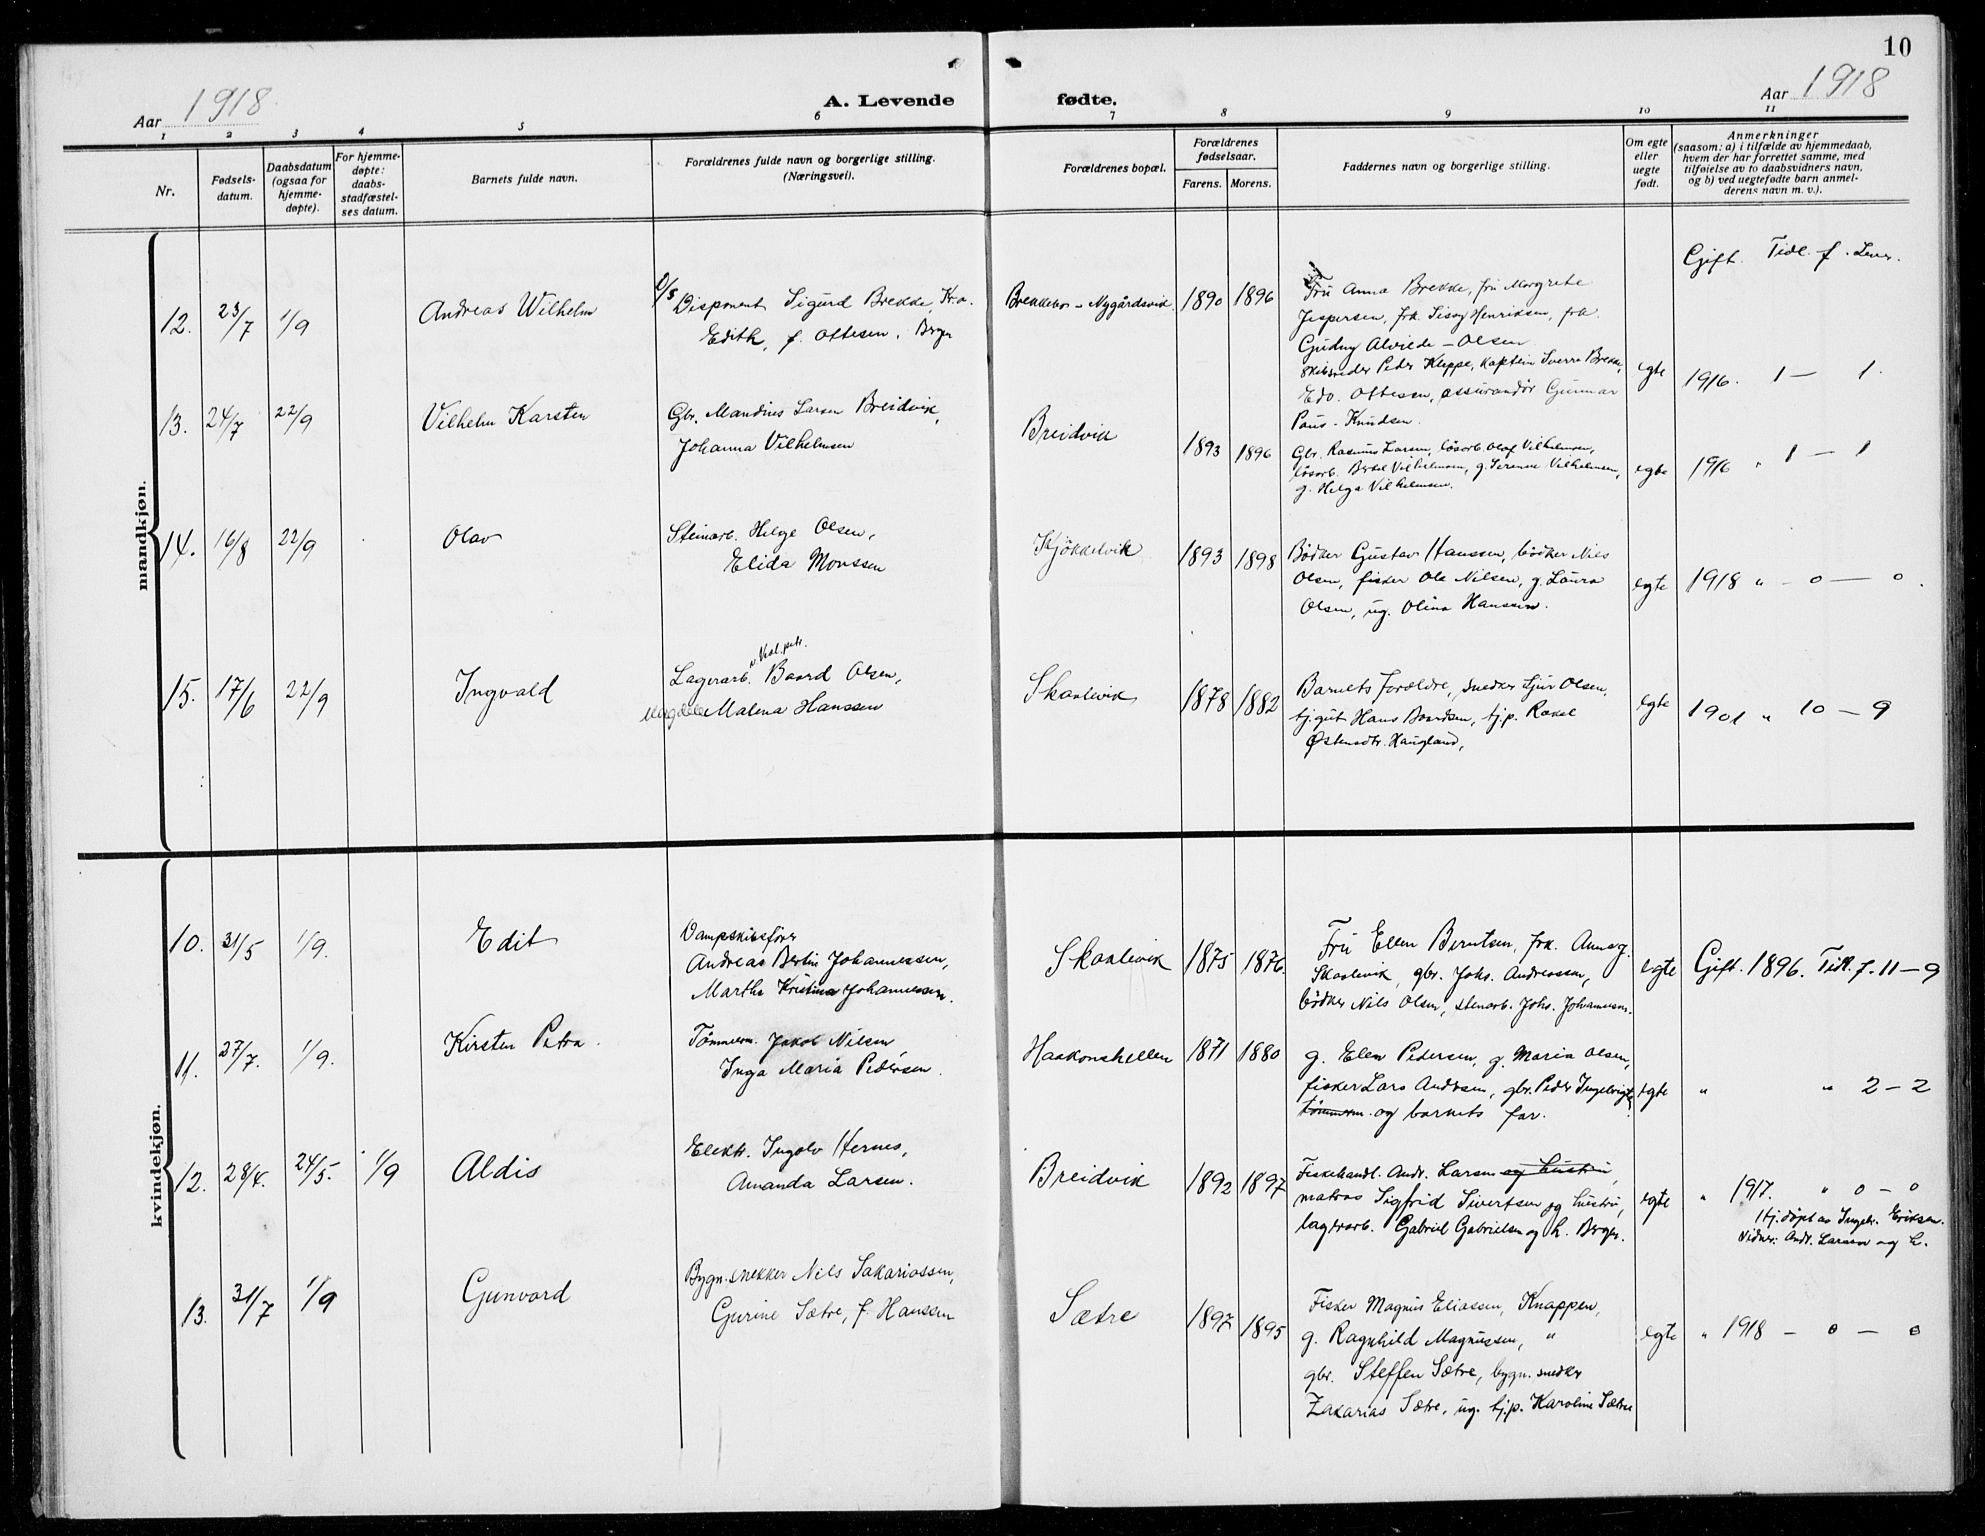 10
Aar 1918
A. Levende fødte.
Aar 1918
1 2 3 4 5 6 7 8 9 10 11
Nr.
Fødsels-
datum.
Daabsdatum
(ogsaa for
hjemme-
døpte).
For hjemme-
døpte:
daabs-
stadfæstel-
ses datum.
Barnets fulde navn.
Forældrenes fulde navn og borgerlige stilling.
(Næringsvei).
Forældrenes bopæl.
Forældrenes
fødselsaar.
Farens. Morens.
Faddernes navn og borgerlige stilling.
Om egte
eller
uegte
født.
Anmerkninger
(saasom: a) i tilfælde av hjemmedaab,
hvem der har forrettet samme, med
tilføielse av to daabsvidners navn,
og b) ved uegtefødte barn anmel-
derens navn m. v.).
mandkjøn.
Gift. Tidl. f. Lever.
12. 23/7 1/9 Andreas Wilhelm
Disponent Sigurd Brekke, Kr.a.
Edith, f. Ottesen, Bergen
Brekkebo - Nygårdsvik 1890 1896
Fru Anna Brekke, fru Margrete
Jespersen, frk. Henriksen, frk.
Gudny Alvilde-Olsen
skibsreder Peder Kleppe, kaptein Sverre Brekke,
Edv. Ottesen, assurandør Gunnar
Paus-Knudsen.
egte 1916. 1 — 1.
13. 24/7 22/9 Vilhelm Karsten
Gbr. Mandius Larsen Breidvik,
Johanna Vilhelmsen
Breidvik 1893 1896
Gbr. Rasmus Larsen, løsarb. Olaf Vilhelmsen,
løsarb. Bertel Vilhelmsen, g. Serenne Vilhelmsen,
g. Helga Vilhelmsen.
egte 1916 " 1 — 1
14. 16/8 22/9 Olav
Steinarb. Helge Olsen,
Elida Monssen
Kjøkkelvik 1893 1898
Bødker Gustav Hanssen, bødker Nils
Olsen, fisker Ole Nilsen, g. Laura
Olsen, ug. Olina Hanssen.
egte 1918 " — 0 — 0.
15. 17/6 22/9 Ingvald
v. Vest. petr.
Lagerarb. Baard Olsen,
Magdele Malena Hanssen
Skaalevik 1878 1882
Barnets forældre, snedker Sjur Olsen,
tj.gut Hans Baardsen, tj.p. Rakel
Østensdtr. Haugland,
egte 1901 " 10 — 9
kvindekjøn.
10. 31/5 1/9. Edit
Dampskibsfører
Andreas Bertin Johannessen,
Martha Kristina Johannessen.
Skaalevik 1875 1876.
Fru Ellen Berntsen, frk. Annag.
Skaalevik, gbr. Johs. Andreassen,
bødker Nils Olsen, stenarb. Johs. Johannessn.
egte Gift. 1896. Tidl. f. 11 — 9
11. 27/7. 1/9. Kirsten Petra.
Tømmerm. Jakob Nilsen
Inga Maria Pedersen.
Haakonshellen 1871 1880
g. Elen Pedersen, g. Maria Olsen,
fisker Lars Andersen, gbr. Peder Ingebrigts.
tømmerm. og barnets far.
egte " " 2 — 2
12. 28/4. 24/5. 1/9 Aldis
Elektr. Ingolv Hernes,
Amanda Larsen.
Breidvik 1892 1897
Fiskehandl. Andr. Larsen og hustru,
matros Sigfrid Sivertsen og hustru,
lagerarb. Gabriel Gabrielsen og h. Bergen.
egte " 1917. " 0 — 0
Hj.døpt av Ingebr. Eriksen.
Vidner: Andr. Larsen og h.
13. 31/7 1/9 Gunvord
Bygn.snekker Nils Sakariassen,
Gurine Sætre, f. Hanssen
Sætre 1897 1895
Fisker Magnus Eliassen, Knappen,
g. Ragnhild Magnussen, "
gbr. Steffen Sætre, bygn. snedker
Zakarias Sætre, ug. tj.p. Karoline Sætre
egte " 1918 — 0 — 0